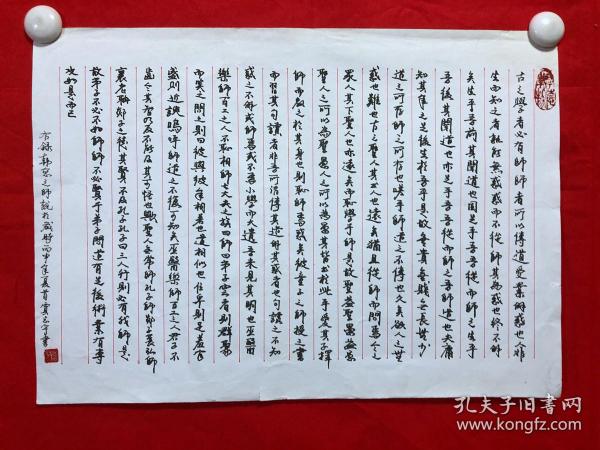 古之學者必有師師者所以傳道受業解惑也人非
生而知之者孰能無惑惑而不從師其為惑也終不解
矣生乎吾前其聞道也固先乎吾吾從而師之生乎
吾後其聞道也亦先乎吾吾從而師之吾師道也夫庸
知其年之先後生於吾乎是故無貴無賤無長無少
道之所存師之所存也嗟乎師道之不傳也久矣欲人之無
惑也難也古之聖人其出人也遠矣猶且從師而問焉今之
眾人其下聖人也亦遠矣而恥學於師是故聖益聖愚益愚
聖人之所以為聖愚人之所以為愚其皆出於此乎愛其子擇
師而教之於其身也則恥師焉惑矣彼童子之師授之書
而習其句讀者非吾所謂傳其道解其惑者也句讀之不知
惑之不解或師焉或不焉小學而大遺吾未見其明也巫醫
樂師百工之人不恥相師士大夫之族曰師曰弟子云者則群聚
而笑之問之則曰彼與彼年相若也道相似也位卑則足羞官
盛則近諛嗚呼師道之不復可知矣巫醫樂師百工之人君子不
齒今其智乃反不能及其可怪也歟聖人無常師孔子師郯子萇弘師
襄老聃郯子之徒其賢不及孔子孔子曰三人行則必有我師是
故弟子不必不如師師不必賢于弟子聞道有先後術業有專
攻如是而已
方錄韓愈之師說於 時丙申年夏首 書
孔夫子旧书网
www.kongfz.com